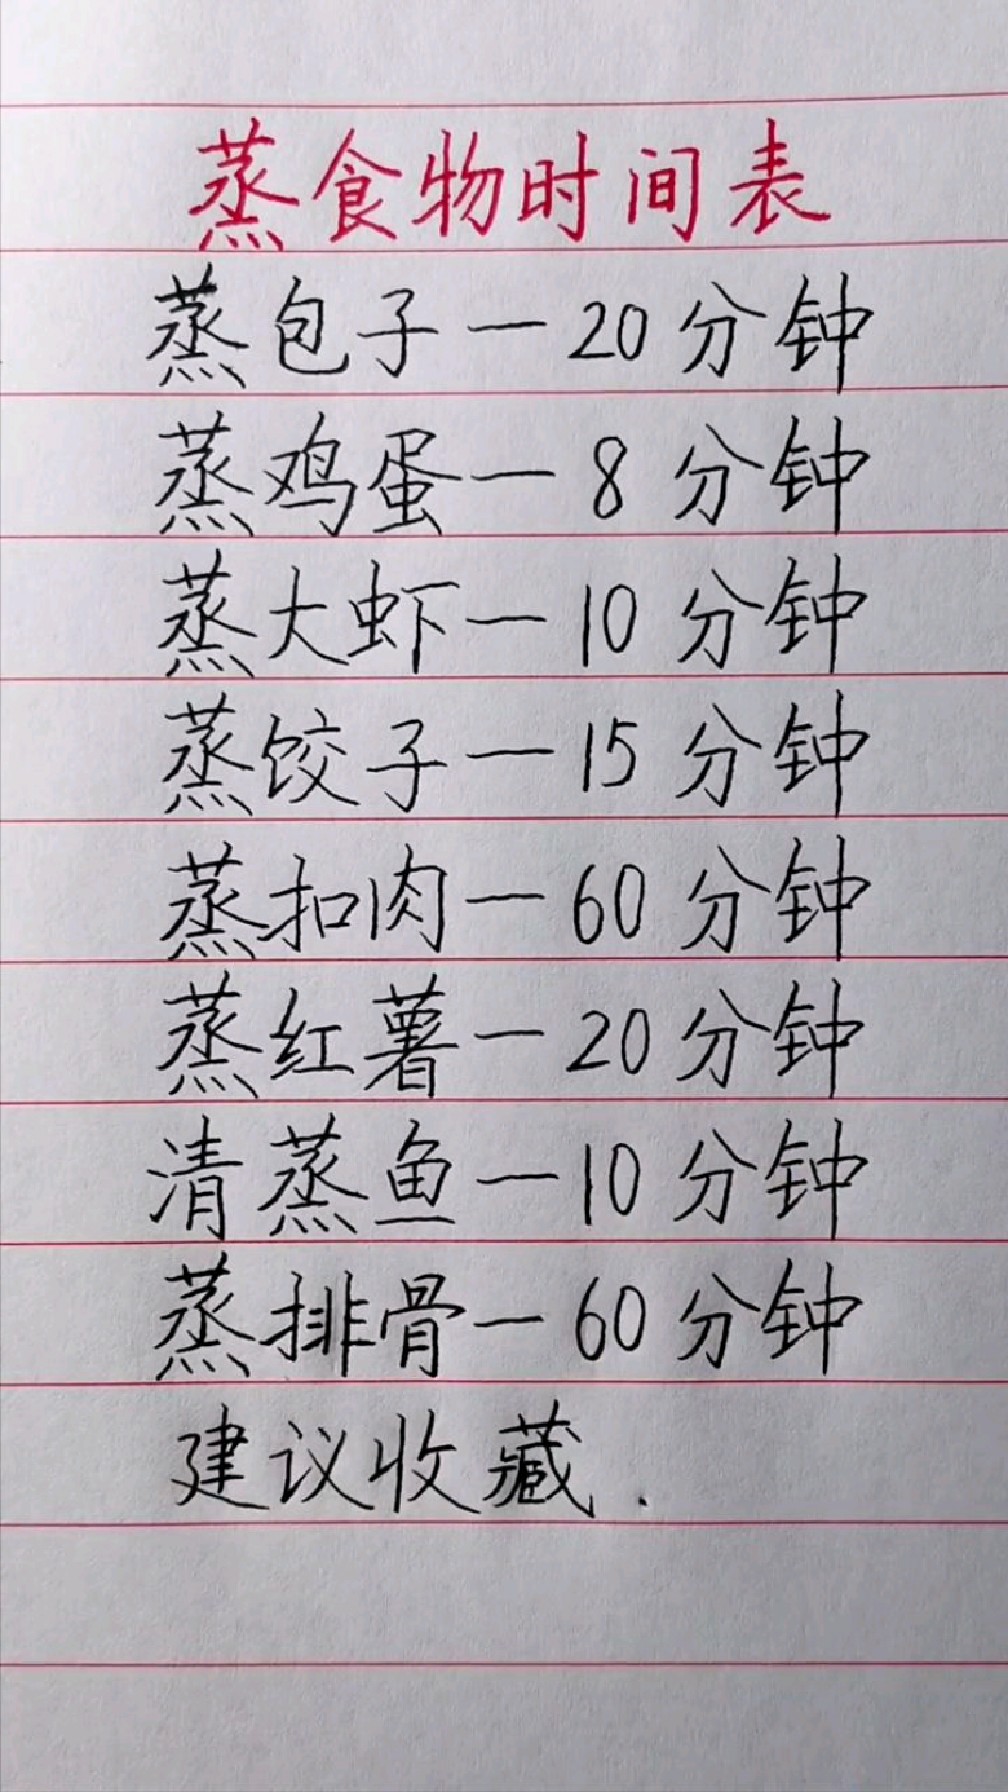 蒸食物时间表
蒸包子一20分钟
蒸鸡蛋一8分钟
蒸大虾一10分钟
蒸饺子一15分钟
蒸扣肉一60分钟
蒸红薯一20分钟
清蒸鱼一10分钟
蒸排骨一60分钟
建议收藏.